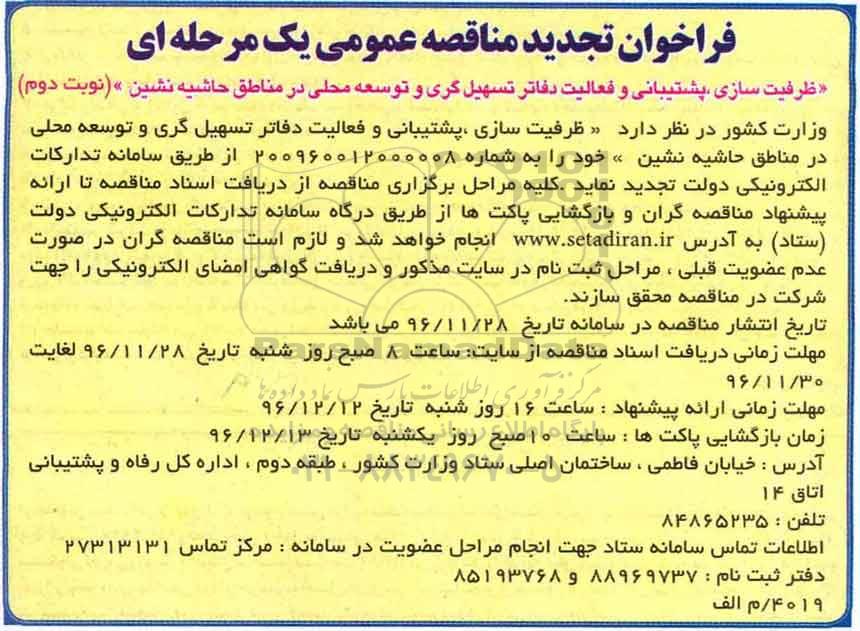 فراخوان تجدید مناقصه عمومی یک مرحله ای
«ظرفیت سازی ،پشتیبانی و فعالیت دفاتر تسهیل گری و توسعه محلی در مناطق حاشیه نشین »(نوبت دوم)
وزارت کشور در نظر دارد « ظرفیت سازی ،پشتیبانی و فعالیت دفاتر تسهیل گری و توسعه محلی
در مناطق حاشیه نشین » خود را به شماره ۲۰۰۹۶۰۰۱۲۰۰۰۰۰۰۸ از طریق سامانه تدارکات
الکترونیکی دولت تجدید نماید .کلیه مراحل برگزاری مناقصه از دریافت اسناد مناقصه تا ارائه
پیشنهاد مناقصه گران و بازگشایی پاکت ها از طریق درگاه سامانه تدارکات الکترونیکی دولت
(ستاد) به آدرس www.setadiran.ir انجام خواهد شد و لازم است مناقصه گران در صورت
عدم عضویت قبلی ، مراحل ثبت نام در سایت مذکور و دریافت گواهی امضای الکترونیکی را جهت
شرکت در مناقصه محقق سازند.
تاریخ انتشار مناقصه در سامانه تاریخ ۹۶/۱۱/۲۸ می باشد
مهلت زمانی دریافت اسناد مناقصه از سایت: ساعت ۸ صبح روز شنبه تاریخ ۹۶/۱۱/۲۸ لغایت
۹۶/۱۱/۳۰
مهلت زمانی ارائه پیشنهاد : ساعت ۱۶ روز شنبه تاریخ ۹۶/۱۲/۱۲
زمان بازگشایی پاکت ها : ساعت ۱۰صبح روز یکشنبه تاریخ ۹۶/۱۲/۱۳
آدرس : خیابان فاطمی ، ساختمان اصلی ستاد وزارت کشور ، طبقه دوم ، اداره کل رفاه و پشتیبانی
اتاق ۱۴
تلفن : ۸۴۸۶۵۲۳۵
اطلاعات تماس سامانه ستاد جهت انجام مراحل عضویت در سامانه : مرکز تماس ۲۷۳۱۳۱۳۱
دفتر ثبت نام : ۸۸۹۶۹۷۳۷ و ۸۵۱۹۳۷۶۸
۴۰۱۹/م الف
ParsNamadData
مرکز فرآوری اطلاعات پارس نماد داده ها
پایگاه اطلاع رسانی مناقصه و مزایده